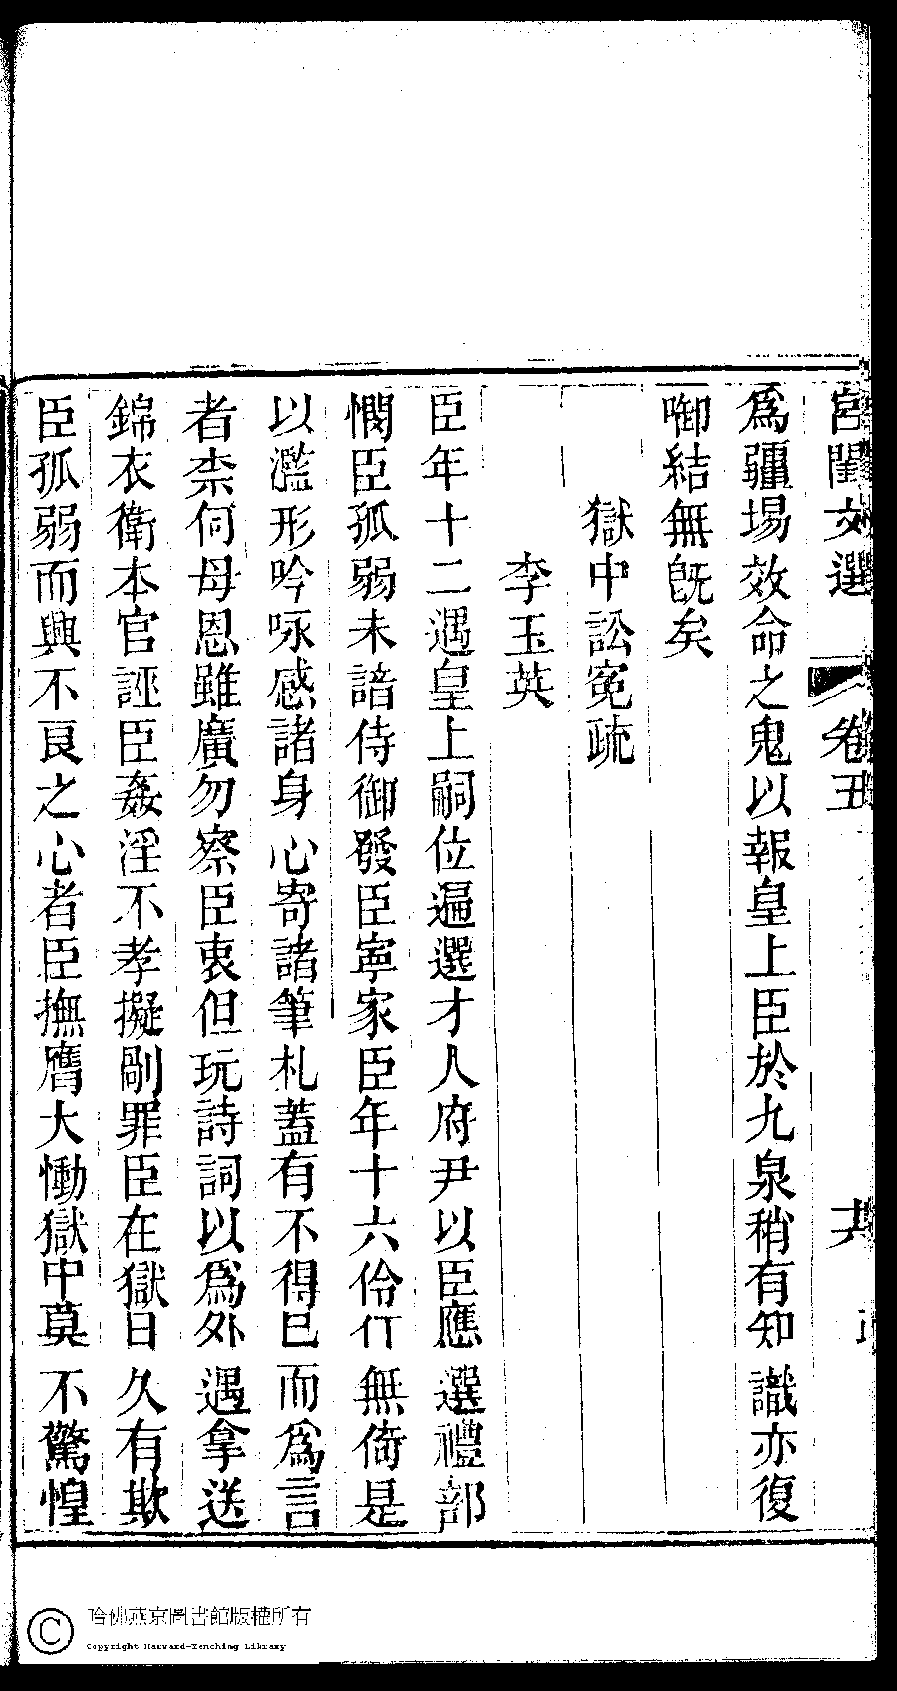 宮閨文選 卷五
爲疆埸效命之鬼以報皇上臣於九泉稍有知識亦復
啣結無旣矣
獄中訟寃疏
李玉英
臣年十二遇皇上嗣位遍選才人府尹以臣應選禮部
憫臣孤弱未諳侍御發臣寧家臣年十六伶仃無倚是
以濫形吟咏感諸身心寄諸筆札蓋有不得已而爲言
者柰何母恩雖廣勿察臣衷但玩詩詞以爲外遇拿送
錦衣衛本官誣臣姦淫不孝擬剮罪臣在獄日久有欺
臣孤弱而興不良之心者臣撫膺大慟獄中莫不驚惶
哈佛燕京圖書館版權所有
Copyright Harvard-Yenching Library